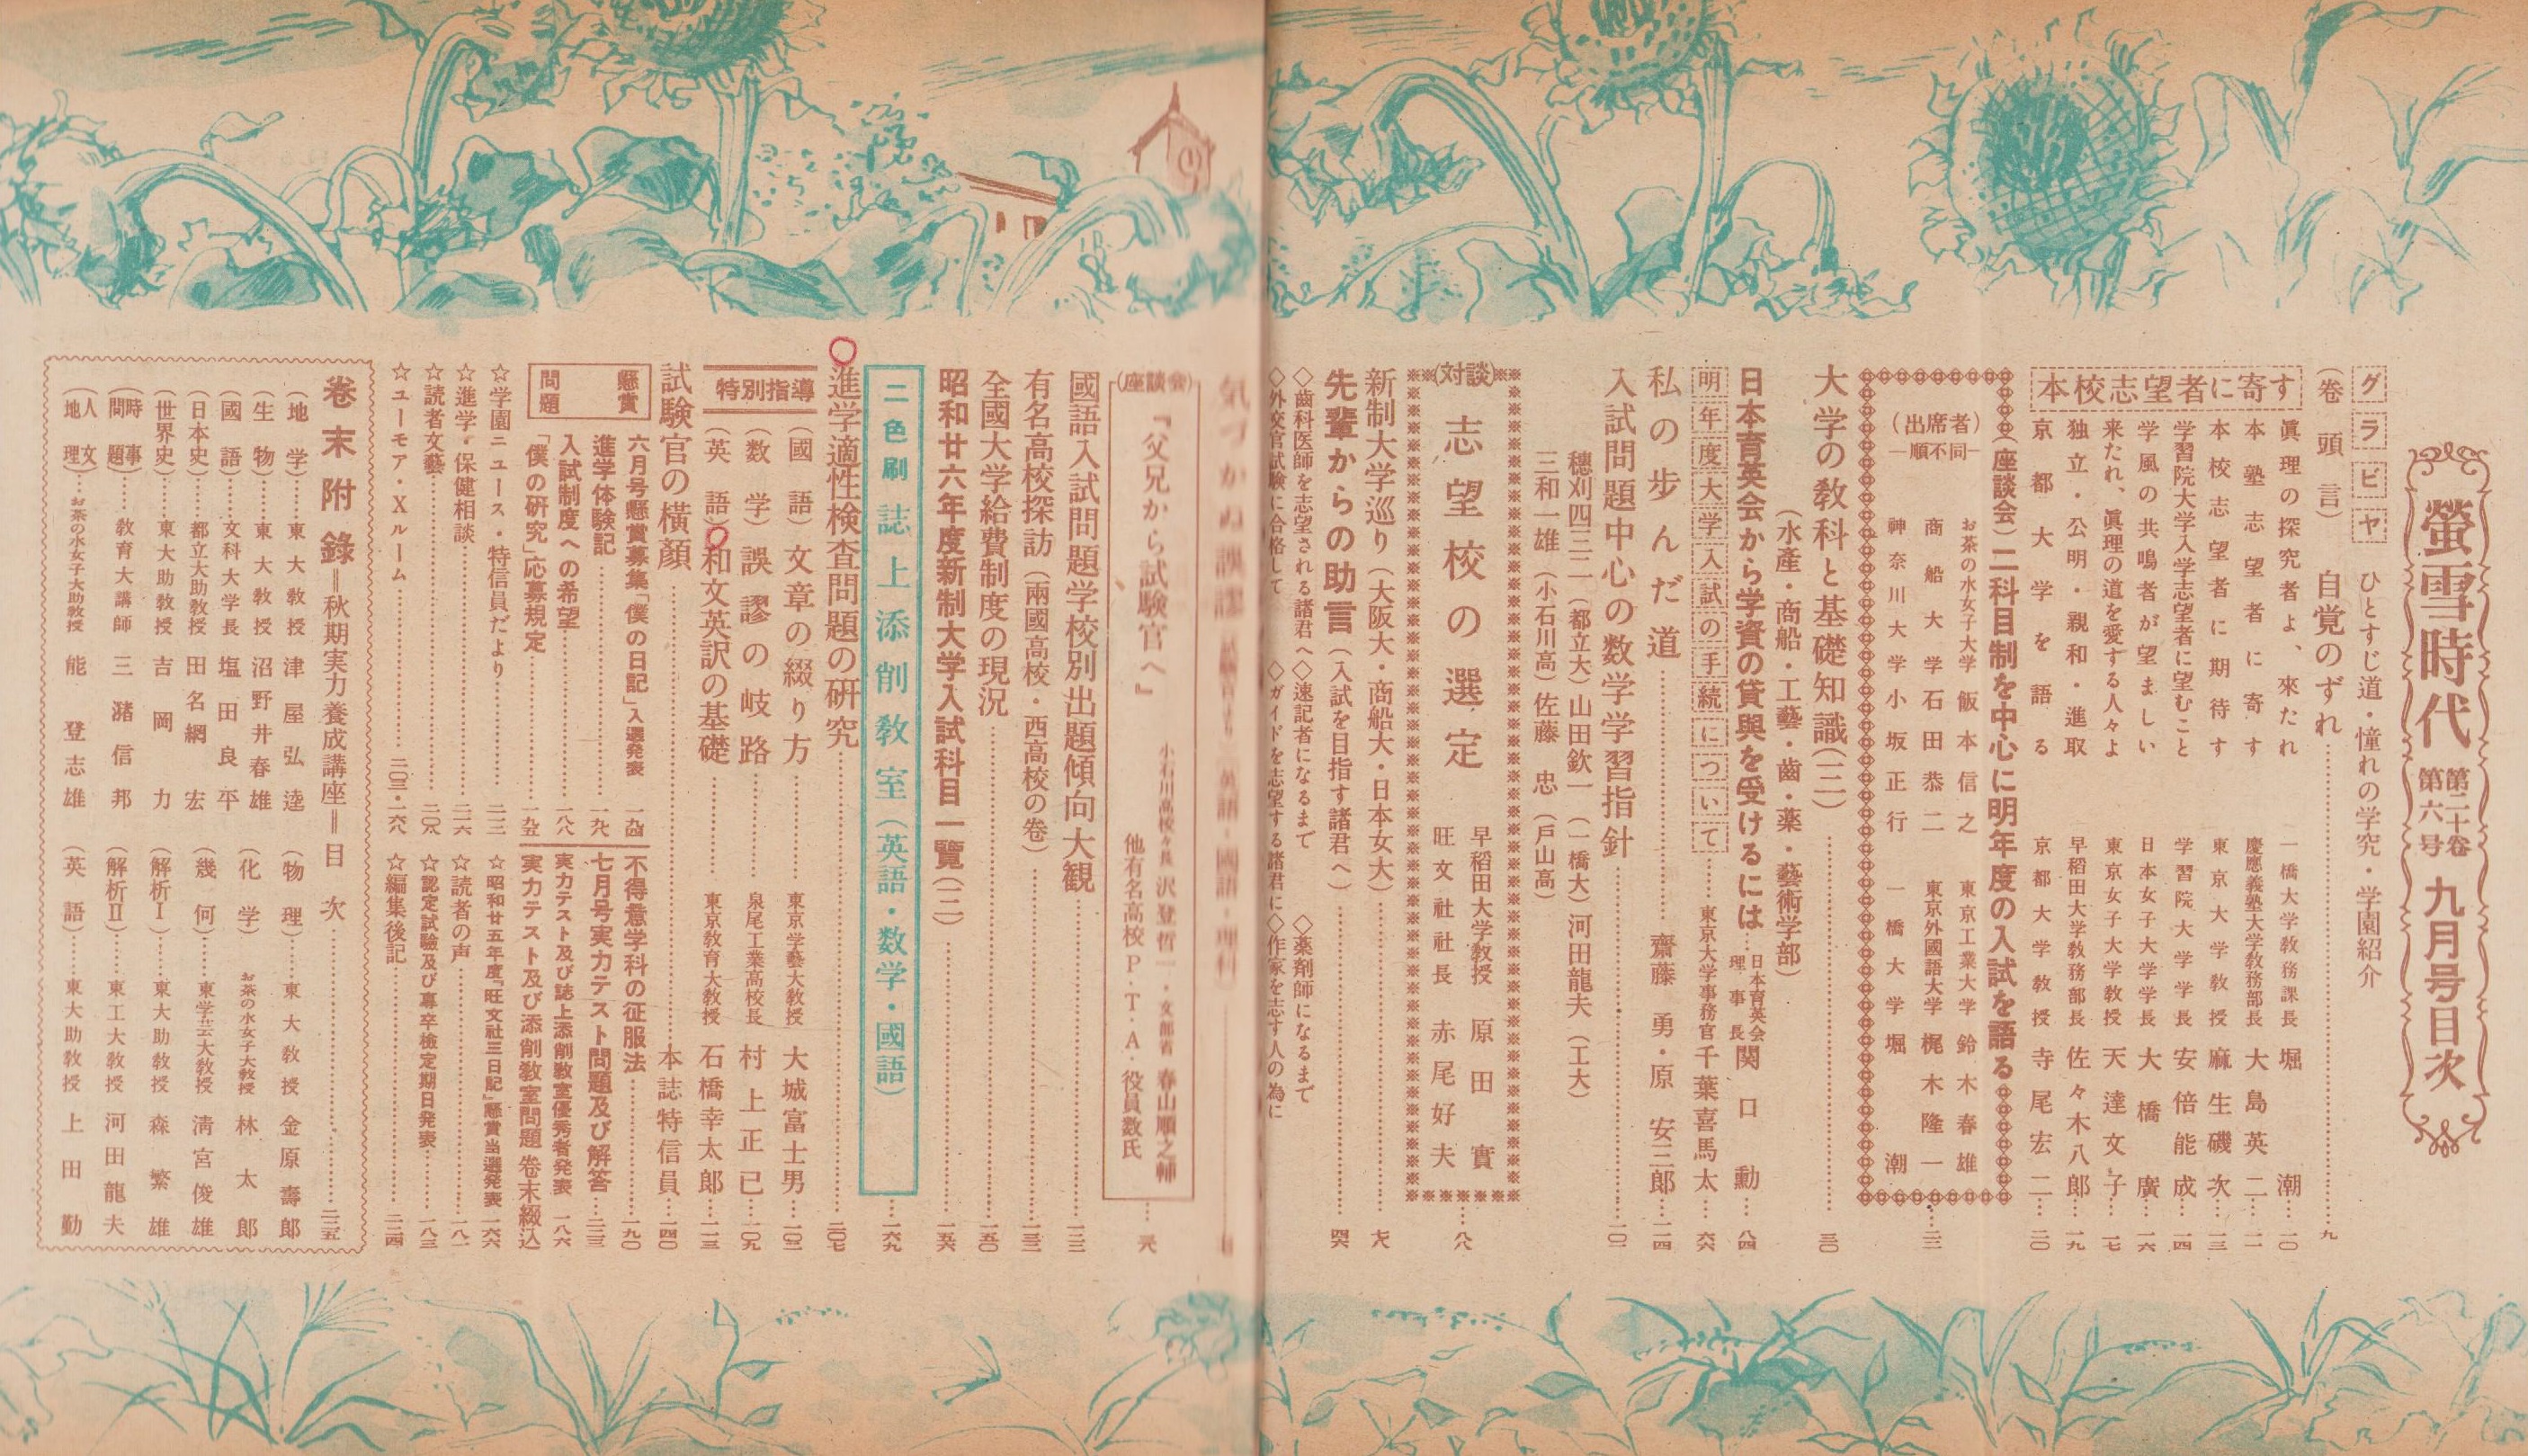 螢雪時代 第二十卷 第六号 九月号目次
グラビヤ ひとすじ道・憧れの学究・学園紹介
(卷頭言) 自覚のずれ……九
本校志望者に寄す
眞理の探究者よ、來たれ 一橋大学教務課長 堀潮…一〇
本塾志望者に寄す 慶應義塾大学教務部長 大島英二…一一
本校志望者に期待す 東京大学教授 麻生磯次…一三
学習院大学入学志望者に望むこと 学習院大学学長 安倍能成…一四
学風の共鳴者が望ましい 日本女子大学学長 大橋廣…一六
来たれ、眞理の道を愛する人々よ 東京女子大学教授 天達文子…一七
独立・公明・親和・進取 早稲田大学教務部長 佐々木八郎…一九
京都大学を語る 京都大学教授 寺尾宏二…二〇
(座談会) 二科目制を中心に明年度の入試を語る
(出席者) ―順不同―
お茶の水女子大学 飯本信之 東京工業大学 鈴木春雄
商船大学 石田恭二 東京外國語大学 梶木隆一
神奈川大学 小坂正行 一橋大学 堀潮
…二二
大学の教科と基礎知識(三)……三〇
(水産・商船・工藝・歯・薬・藝術学部)
日本育英会から学資の貸與を受けるには… 日本育英会理事長 関口勳…八四
明年度大学入試の手続について…… 東京大学事務官 千葉喜馬太…六六
私の歩んだ道…… 齋藤勇・原安三郎…二四
入試問題中心の数学学習指針……一〇一
穗刈四三二(都立大) 山田欽一(一橋大) 河田龍夫(工大)
三和一雄(小石川高) 佐藤忠(戸山高)
(対談) 志望校の選定
早稲田大学教授 原田實
旺文社社長 赤尾好夫
…八八
新制大学巡り(大阪大・商船大・日本女大)……七八
先輩からの助言(入試を目指す諸君へ)……四六
◇歯科医師を志望される諸君へ ◇速記者になるまで ◇薬剤師になるまで
◇外交官試験に合格して ◇ガイドを志望する諸君に ◇作家を志す人の為に
(座談会) 『父兄から試験官へ』
小石川高校々長 沢登哲一・文部省 春山順之輔
他有名高校P・T・A・役員数氏
…三八
國語入試問題学校別出題傾向大観……一二二
有名高校探訪(兩國高校・西高校の卷)……一三二
全國大学給費制度の現況……一五〇
昭和廿六年度新制大学入試科目一覽(二)……一五六
二色刷 誌上添削教室(英語・数学・國語)…一六九
進学適性検査問題の研究……二〇七
特別指導
(國語) 文章の綴り方…… 東京学藝大教授 大城富士男…一〇三
(数学) 誤謬の岐路…… 泉尾工業高校長 村上正已…一〇九
(英語) 和文英訳の基礎…… 東京教育大教授 石橋幸太郎…一一三
試験官の橫顏…… 本誌特信員…一四〇
懸賞問題
六月号懸賞募集「僕の日記」入選発表……一九四
進学体験記……一九六
入試制度への希望……一八八
「僕の研究」応募規定……一九五
不得意学科の征服法……一九〇
七月号実力テスト問題及び解答…二三三
実力テスト及び誌上添削教室優秀者発表…一八六
実力テスト及び添削教室問題 卷末綴込
☆学園ニュース・特信員だより……二三二
☆進学・保健相談……二一六
☆読者文藝……二〇八
☆ユーモア・Xルーム……二〇三・一六八
☆昭和廿五年度「旺文社三日記」懸賞当選発表…一六六
☆読者の声……一八一
☆認定試験及び専卒検定期日発表……一八三
☆編集後記……二二四
卷末附錄=秋期実力養成講座=目次……二三五
(地学)…東大教授 津屋弘逵
(生物)…東大教授 沼野井春雄
(國語)…文科大学長 塩田良平
(日本史)…都立大助教授 田名網宏
(世界史)…東大助教授 吉岡力
(時事問題)…教育大講師 三瀦信邦
(人文地理)…お茶の水女子大助教授 能登志雄
(物理)…東大教授 金原壽郎
(化学) お茶の水女子大教授 林太郎
(幾何)…東学芸大教授 淸宮俊雄
(解析Ⅰ)…東大助教授 森繁雄
(解析Ⅱ)…東工大教授 河田龍夫
(英語)…東大助教授 上田勤